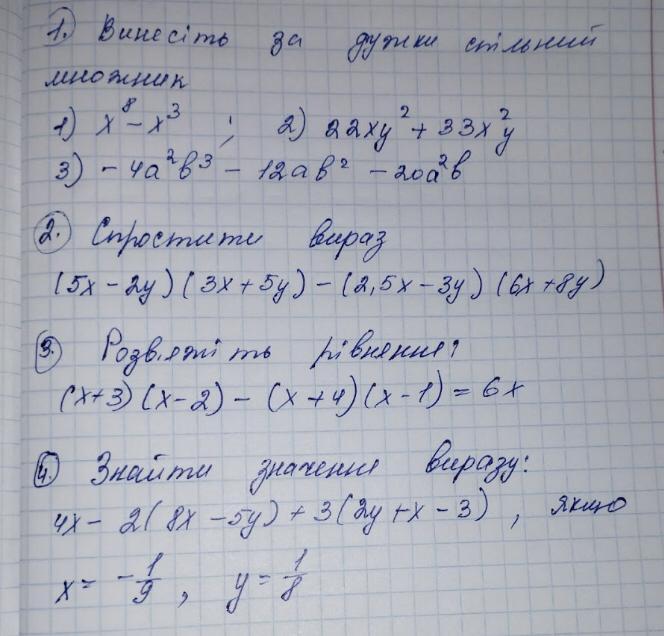 1. Винесіть за дужки спільний
множник
1) x⁸ - x³ ; 2) 22xy² + 33x²y
3) - 4a²b³ - 12ab² - 20a²b
2. Спростити вираз
(5x - 2y)(3x + 5y) - (2,5x - 3y)(6x + 8y)
3. Розв'яжіть рівняння:
(x+3)(x-2) - (x+4)(x-1) = 6x
4. Знайти значення виразу:
4x - 2(8x - 5y) + 3(2y + x - 3), якщо
x = -1/9, y = 1/8